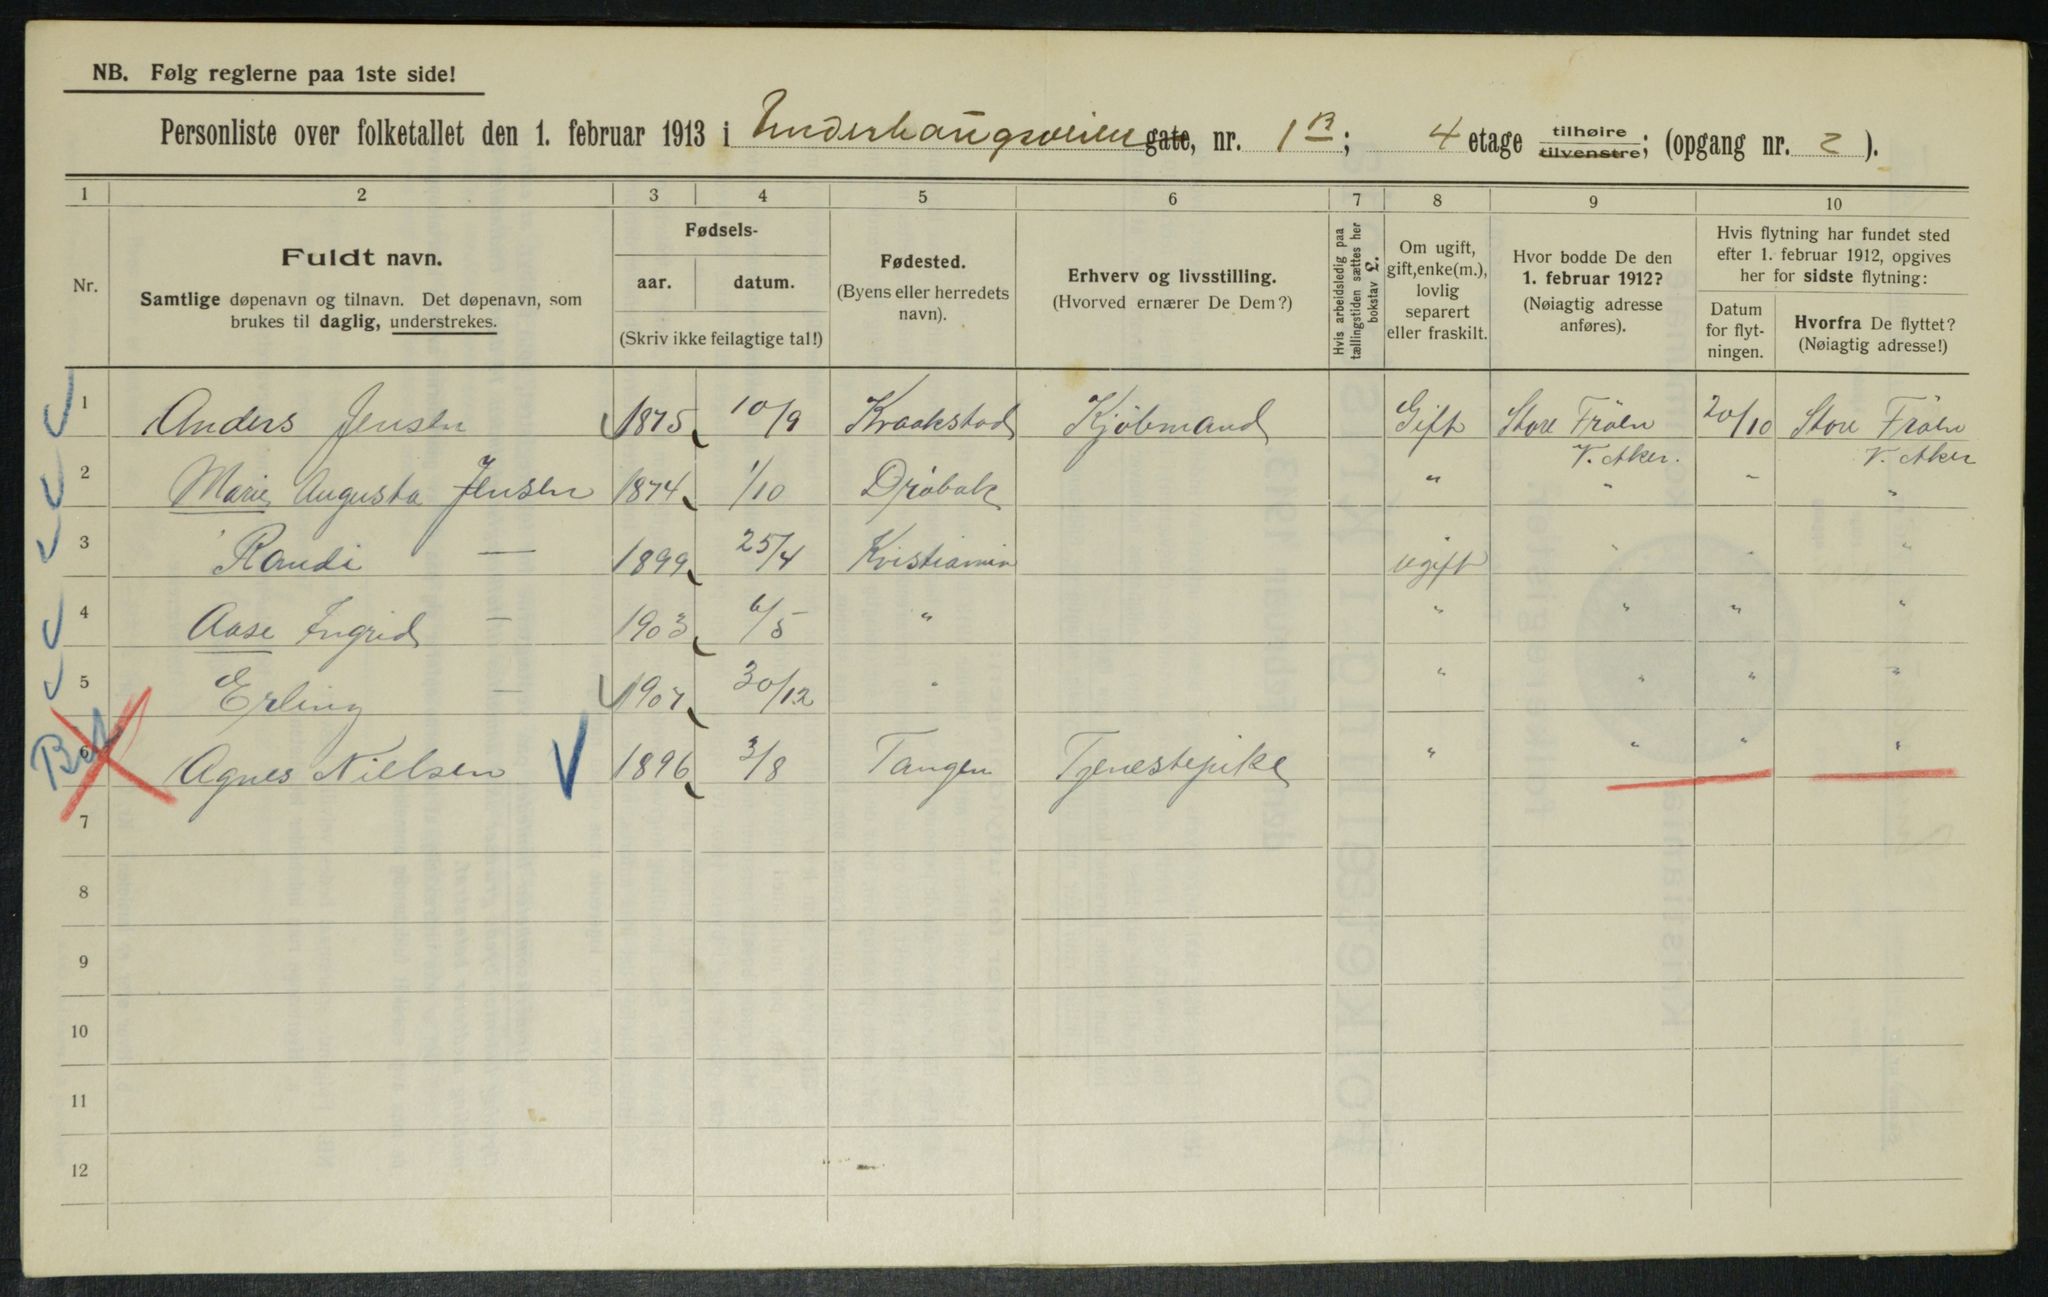 NB. Følg reglerne paa 1ste side!
Personliste over folketallet den 1. februar 1913 i Underhaugsveien gate, nr. 1B; 4 etage tilhøire tilvenstre; (opgang nr. 2).
1 2 3 4 5 6 7 8 9 10
Nr.
Fuldt navn.
Samtlige døpenavn og tilnavn. Det døpenavn, som
brukes til daglig, understrekes.
Fødsels-
aar. datum.
(Skriv ikke feilagtige tal!)
Fødested.
(Byens eller herredets
navn).
Erhverv og livsstilling.
(Hvorved ernærer De Dem?)
Hvis arbeidsledig paa
tællingstiden sættes her
bokstav £.
Om ugift,
gift, enke(m.),
lovlig
separert
eller fraskilt.
Hvor bodde De den
1. februar 1912?
(Nøiagtig adresse
anføres).
Hvis flytning har fundet sted
efter 1. februar 1912, opgives
her for sidste flytning:
Datum
for flyt-
ningen.
Hvorfra De flyttet?
(Nøiagtig adresse!)
1 Anders Jensen 1875 10/9 Kraakstad Kjøbmand Gift Store Frøen V. Aker. 20/10 Store Frøen V. Aker
2 Marie Augusta Jensen 1874 1/10 Drøbak " " " "
3 Randi — 1899 25/4 Kristiania ugift " " "
4 Aase Ingrid — 1903 6/5 " " " " "
5 Erling — 1907 30/12 " " " " "
6 Agnes Nielsen 1896 3/8 Tangen Tjenestepike " " " "
7
8
9
10
11
12